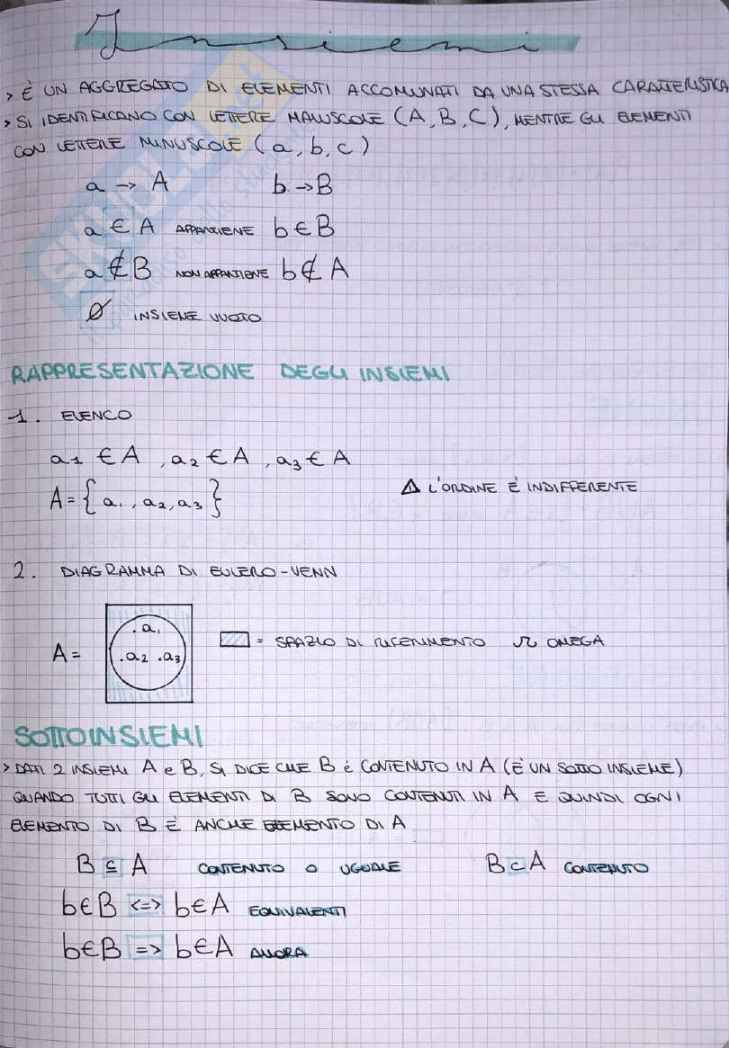 Insiemi
> È UN AGGREGATO DI ELEMENTI ACCOMUNATI DA UNA STESSA CARATTERISTICA
> SI IDENTIFICANO CON LETTERE MAIUSCOLE (A, B, C), MENTRE GLI ELEMENTI
CON LETTERE MINUSCOLE (a, b, c)
a → A b → B
a ∈ A APPARTIENE b ∈ B
a ∉ B NON APPARTIENE b ∉ A
∅ INSIEME VUOTO
RAPPRESENTAZIONE DEGLI INSIEMI
1. ELENCO
a1 ∈ A , a2 ∈ A , a3 ∈ A
A = { a1, a2, a3 } ⚠ L'ORDINE È INDIFFERENTE
2. DIAGRAMMA DI EULERO-VENN
.a1
A = .a2 .a3 = SPAZIO DI RIFERIMENTO Ω OMEGA
SOTTOINSIEMI
> DATI 2 INSIEMI A e B, SI DICE CHE B È CONTENUTO IN A (È UN SOTTO INSIEME)
QUANDO TUTTI GLI ELEMENTI DI B SONO CONTENUTI IN A E QUINDI OGNI
ELEMENTO DI B È ANCHE ELEMENTO DI A
B ⊆ A CONTENUTO O UGUALE B ⊂ A CONTENUTO
b∈B <=> b∈A EQUIVALENTI
b∈B => b∈A ALLORA
SKUOLA.net